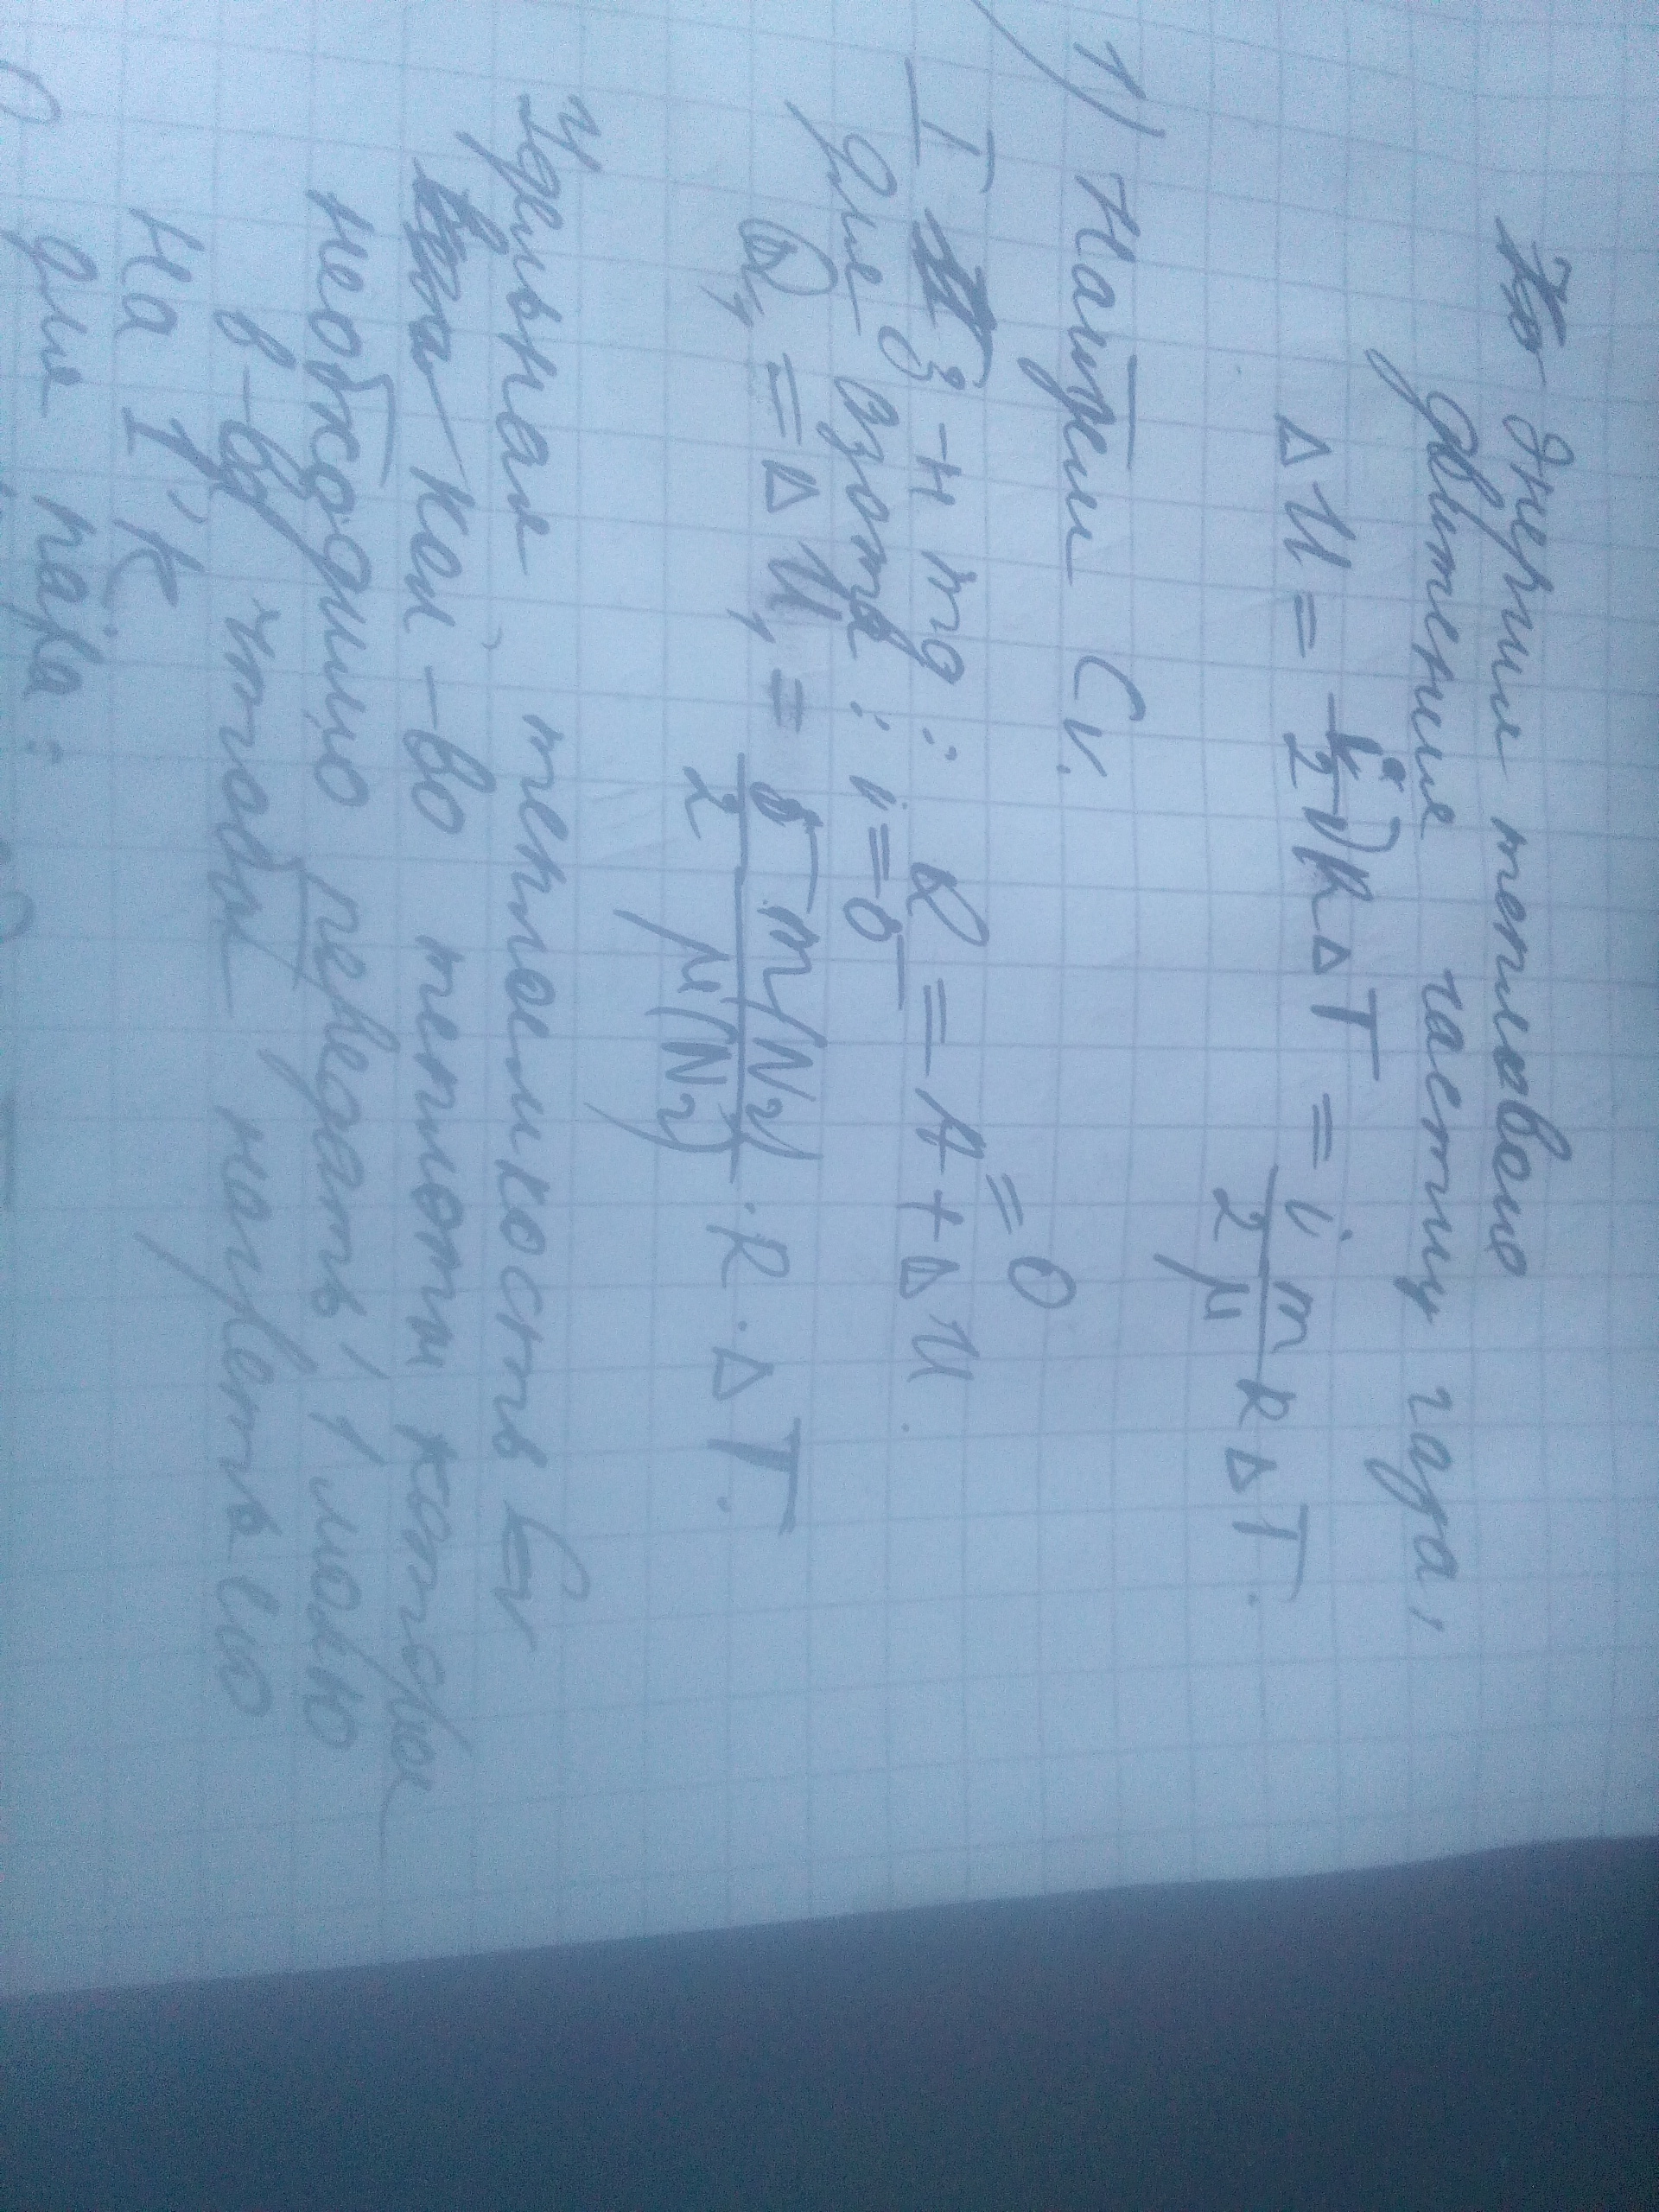 Энергия теплового
движения частиц газа,
ΔU = i/2 νRΔT = i/2 m/μ RΔT.
1) Найдем Cv.
I З-н тд: Q = A + ΔU. = 0
Для азота: i = 5
Q₁ = ΔU₁ = 5/2 m(N₂)/μ(N₂) · R · ΔT.
Удельная теплоемкость Cv
кол-во теплоты которое
необходимо передать 1 молю
в-ва, чтобы нагреть его
на 1 K
для пара: